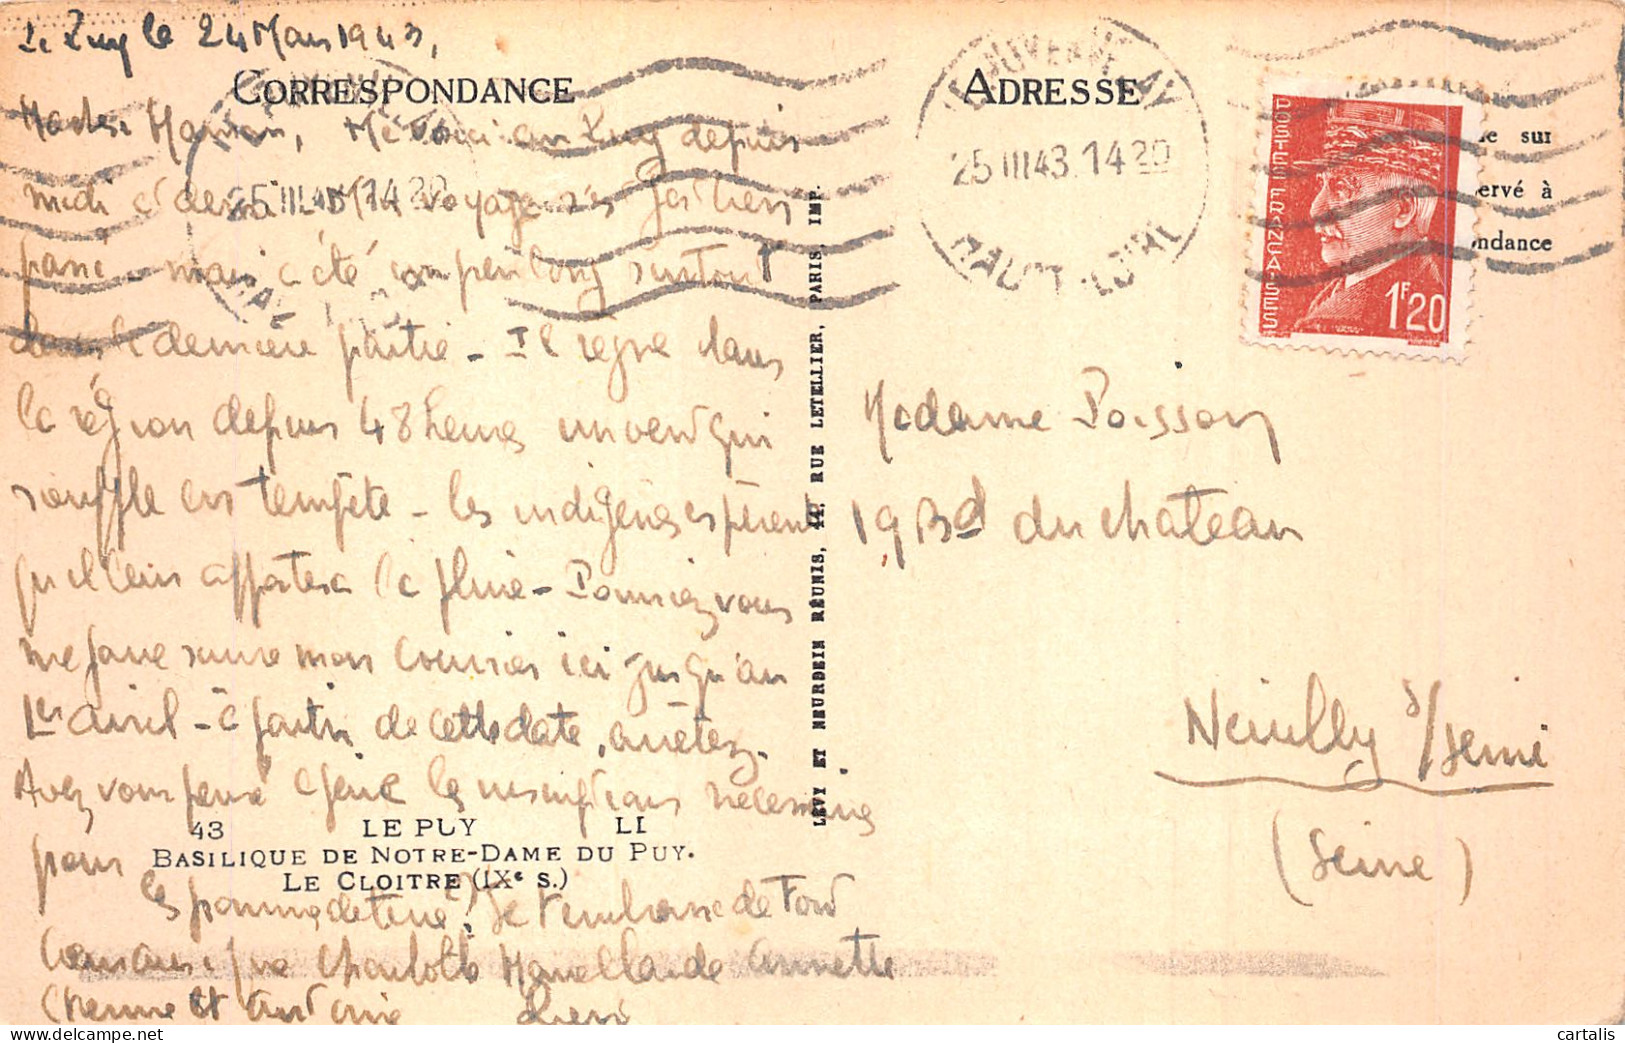 Le Puy le 24 Mars 1943,
CORRESPONDANCE
Maman, Me voici au Puy depuis
midi et demi. Mon voyage s'est
passé - mais a été un peu long surtout
dans la dernière partie - Il règne dans
la région depuis 48 heures un vent qui
souffle en tempête - les indigènes espèrent
qu'il apportera la pluie - Pourriez vous
me faire suivre mon courrier ici jusqu'au
1er avril - à partir de cette date, arrêtez.
Avez vous pensé à faire les inscriptions nécessaires
pour
les pommes de terre? Je t'embrasse de tout
coeur ainsi que Charlotte Annette
Etienne et Antoine
43 LE PUY LI
BASILIQUE DE NOTRE-DAME DU PUY.
LE CLOITRE (IXe S.)
LÉVY ET NEURDEIN RÉUNIS, 44, RUE LETELLIER, PARIS IMP.
ADRESSE
25 III 43. 14 20
HAUTE-LOIRE
25 III 43 14 20
POSTES FRANÇAISES
1F20
sur
ervé à
ndance
Madame Poisson
19 Bd du chateau
Neuilly s/Seine
(Seine)
cartalis.com